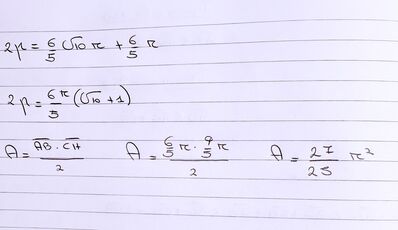 2p = 6/5 √10 r + 6/5 r
2p = 6/5 r (√10 + 1)
A = AB · CH / 2   A = 6/5 r · 9/5 r / 2   A = 27/25 r²